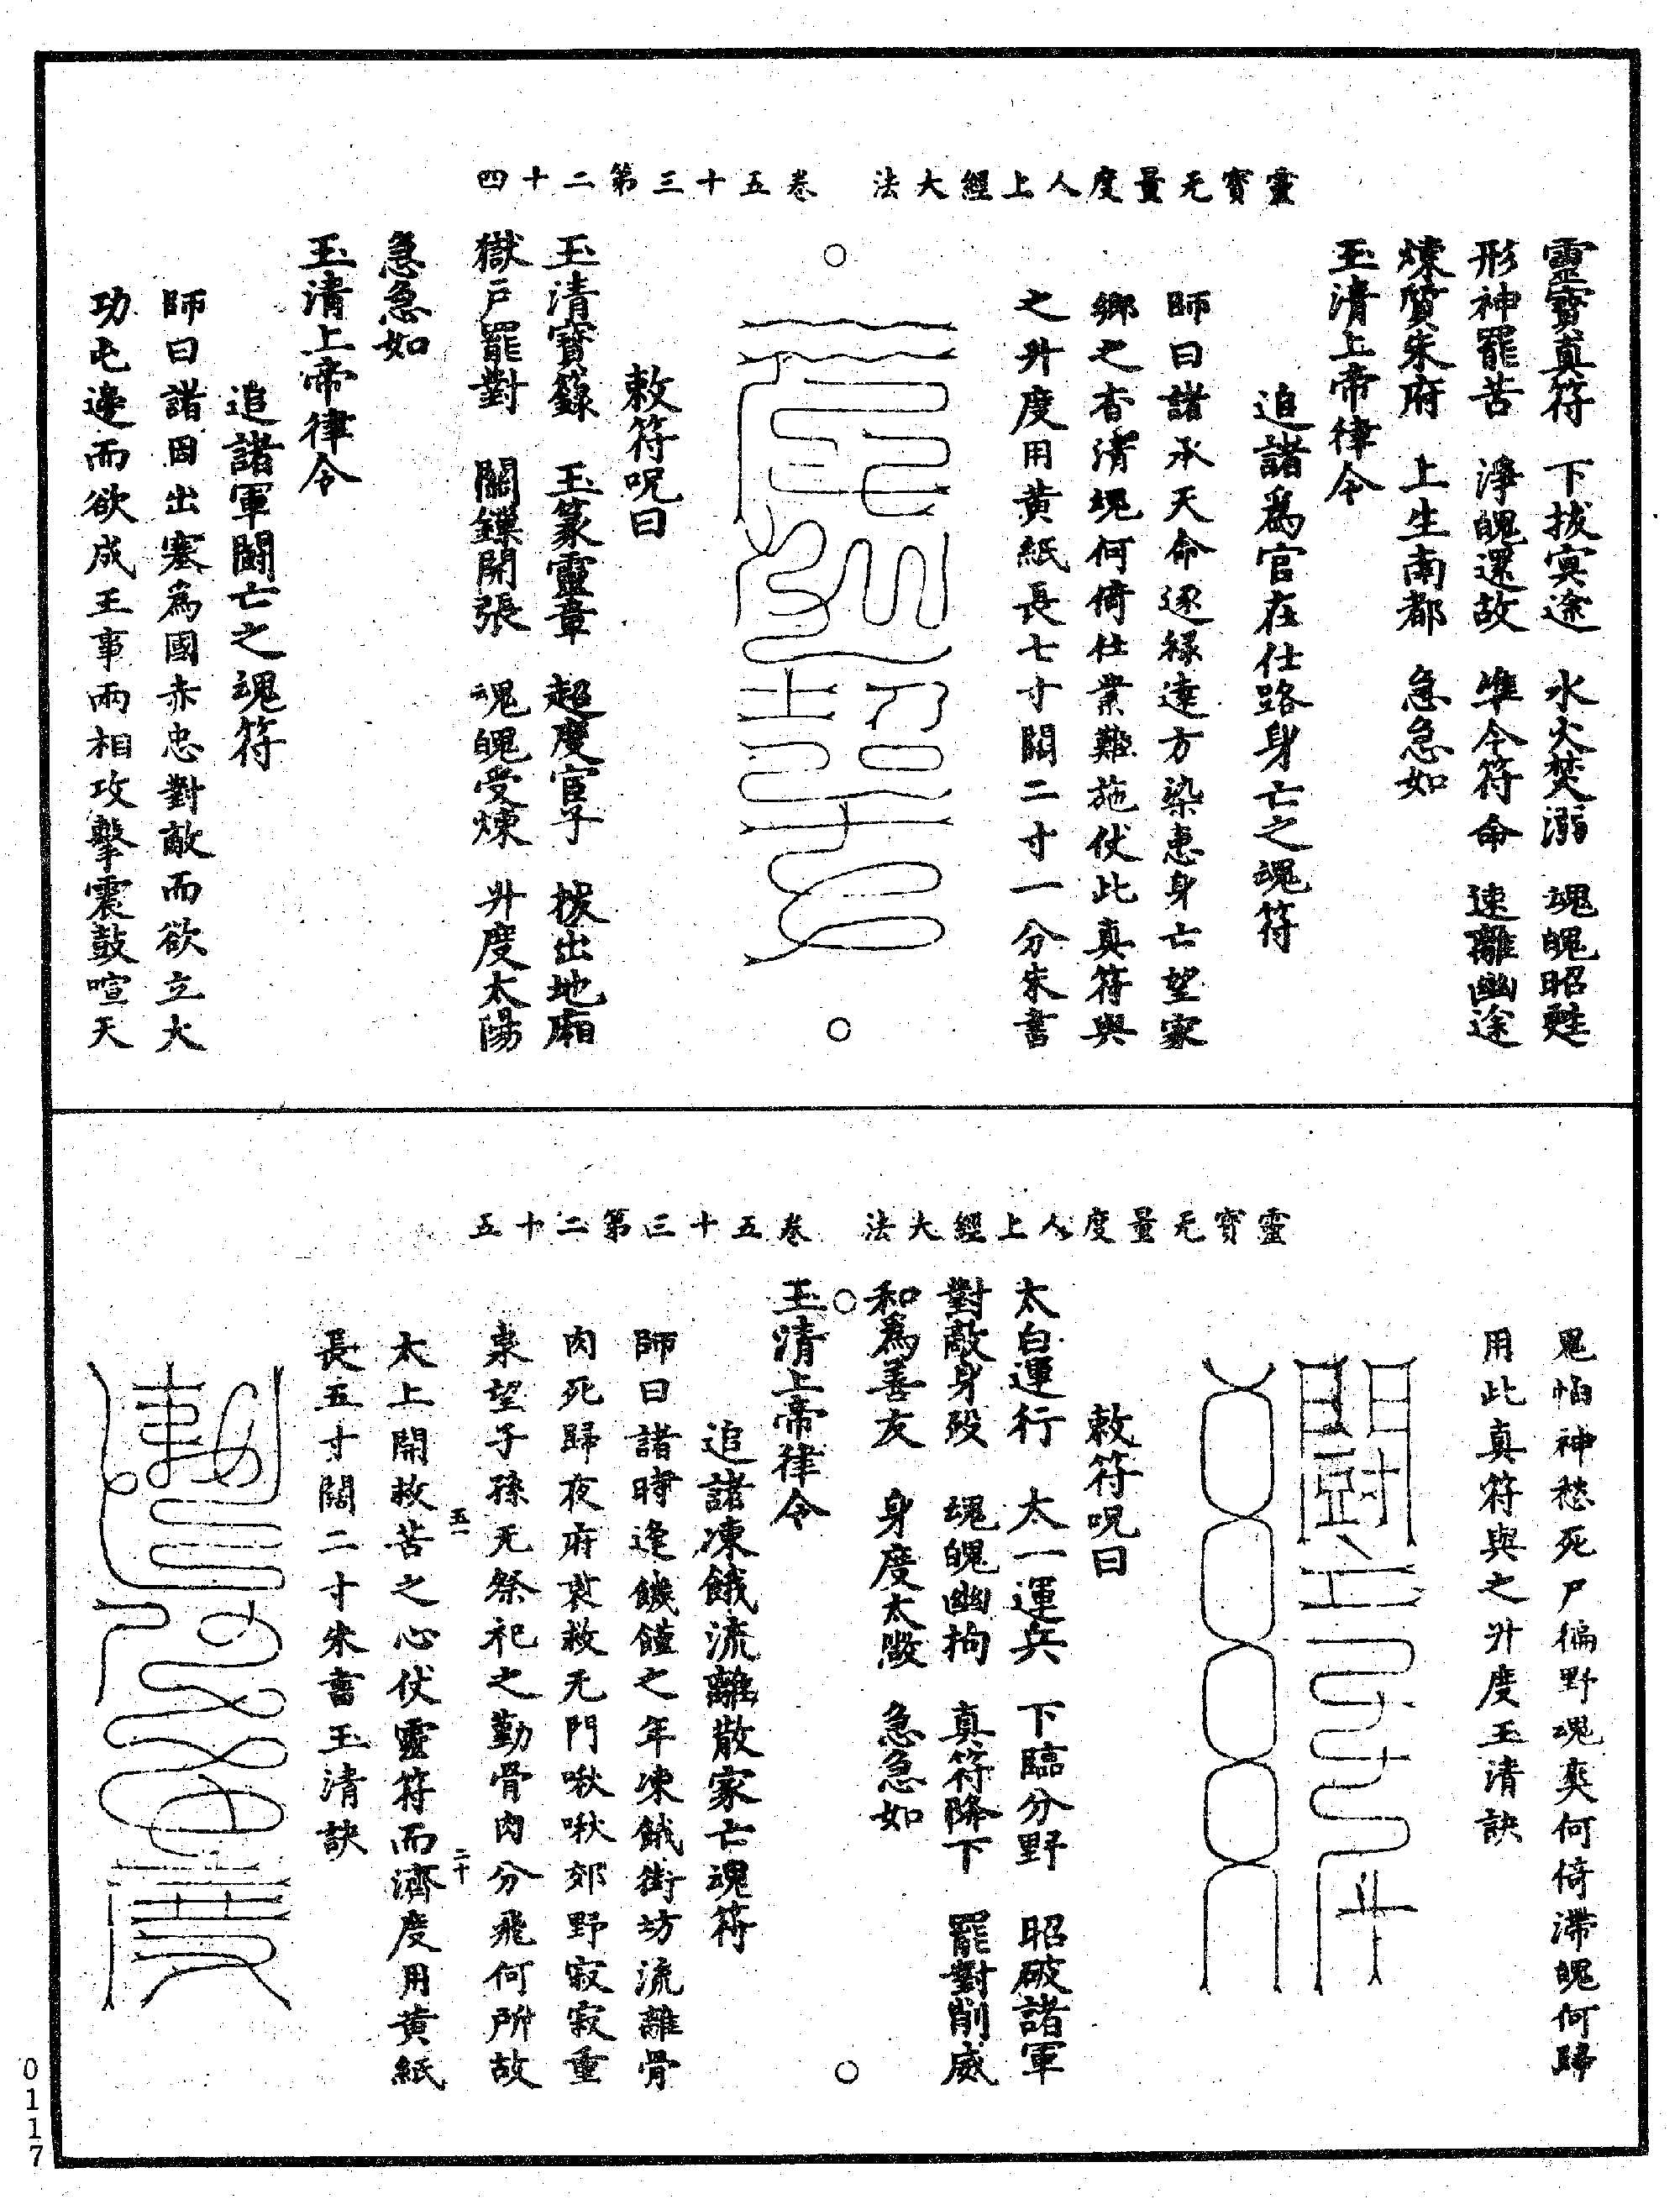 靈寶无量度人上經大法　卷五十三第二十四
靈寶真符　下拔㝠途　水火焚溺　魂魄昭甦
形神罷苦　淨魄還故　準令符命　速離幽途
煉質朱府　上生南都　急急如
玉清上帝律令
追諸爲官在仕路身亡之魂符
師曰諸承天命逐緣達方染患身亡望家
鄉之杳清魂何倚仕業難施伏此真符與
之升度用黃紙長七寸闊二寸一分朱書
敕符呪曰
玉清寶籙　玉篆靈章　超度官子　拔出地廂
獄戶罷對　關鏁開張　魂魄受煉　升度太陽
急急如
玉清上帝律令
追諸軍鬭亡之魂符
師曰諸因出塞爲國赤忠對敵而欲立大
功屯邊而欲成王事兩相攻擊震鼓喧天
靈寶无量度人上經大法　卷五十三第二十五
鬼怕神愁死尸徧野魂爽何倚滯魄何歸
用此真符與之升度玉清訣
敕符呪曰
太白運行　太一運兵　下臨分野　昭破諸軍
對敵身歿　魂魄幽拘　真符降下　罷對削威
和爲善友　身度太　急急如
玉清上帝律令
追諸凍餓流離散家亡魂符
師曰諸時逢饑饉之年凍餓街坊流離骨
肉死歸夜府哀救无門啾啾郊野寂寂重
泉望子孫无祭祀之勤骨肉分飛何所故
五一
二十
太上開救苦之心伏靈符而濟度用黃紙
長五寸闊二寸朱書玉清訣
0117